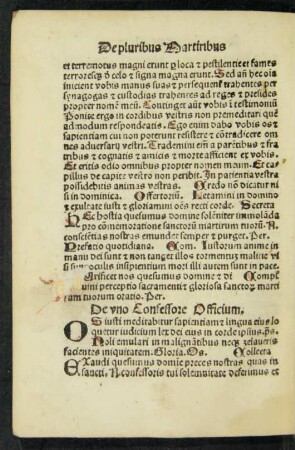 De pluribus Martiribus
et terremotus magni erunt ꝑ loca ⁊ pestilentie et fames
terroresqꝫ ď celo ⁊ signa magna erunt. Sed an̄ hec oīa
inicient vobis manus suas ⁊ persequent̄ trahentes per
synagogas ⁊ custodias trahentes ad reges ⁊ presides
propter nomē meū. Continget aūt vobis ī testimoniū
Ponite ergo in cordibus vestris non premeditari quē
admodum respondeatis. Ego enim dabo vobis os ⁊
sapientiam cui non poterunt resistere ⁊ cōtradicere om
nes aduersarij vestri. Trademini em̄ a parētibus ⁊ fra
tribus ⁊ cognatis ⁊ amicis ⁊ morte afficient ex vobis.
Et eritis odio omnibus propter nomen meum. Et ca=
pillus de capite vestro non peribit. In patientia vestra
possidebitis animas vestras. Credo nō dicatur ni
si in dominica. Offertoriū. Letamini in domino
⁊ exultate iusti ⁊ gloriamini oēs recti corde. Secreta
Hec hostia quesumus domine solēniter immolāda
pro cōmemoratione sanctorū martirum tuorū
cōsciētias nostras emundet semper ⁊ purget. Per.
Prefatio quotidiana. Com. Iustorum anime in
manu dei sunt ⁊ non tanget illos tormentuȝ malicie vi
si sunt oculis insipientium mori illi autem sunt in pace.
Uiuificet nos quesumus domine ⁊ di Compl̄
uini perceptio sacramenti ⁊ gloriosa sanctoꝝ marti
rum tuorum oratio. Per.
De vno Confessore Officium.
Os iusti meditabitur sapientiam ⁊ lingua eius lo
quetur iudicium lex dei eius in corde ipsius. ps.
Noli emulari in malignātibus neqꝫ zelaueris
facientes iniquitatem. Gloria. Os. Collecta
Exaudi quesumus domine preces nostras quas in
sancti. N. confessoris tui solennitate deferimus et